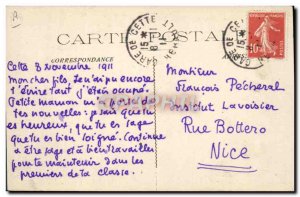 CARTE POSTALE
CORRESPONDANCE
GARE DE CETTE
Cette 3 Novembre 1911
Mon cher fils, Je n'ai pu encore
t'écrire tant j'étais occupé.
Petite maman m'a donné de
tes nouvelles: je sais que tu
es heureux, que tu es sage
que tu es bien soigné. Continue
à être sage et à bien travailler
pour te maintenir dans les
premiers de la classe.
Monsieur
François Pécheral
Institut Lavoisier
Rue Bottero
Nice